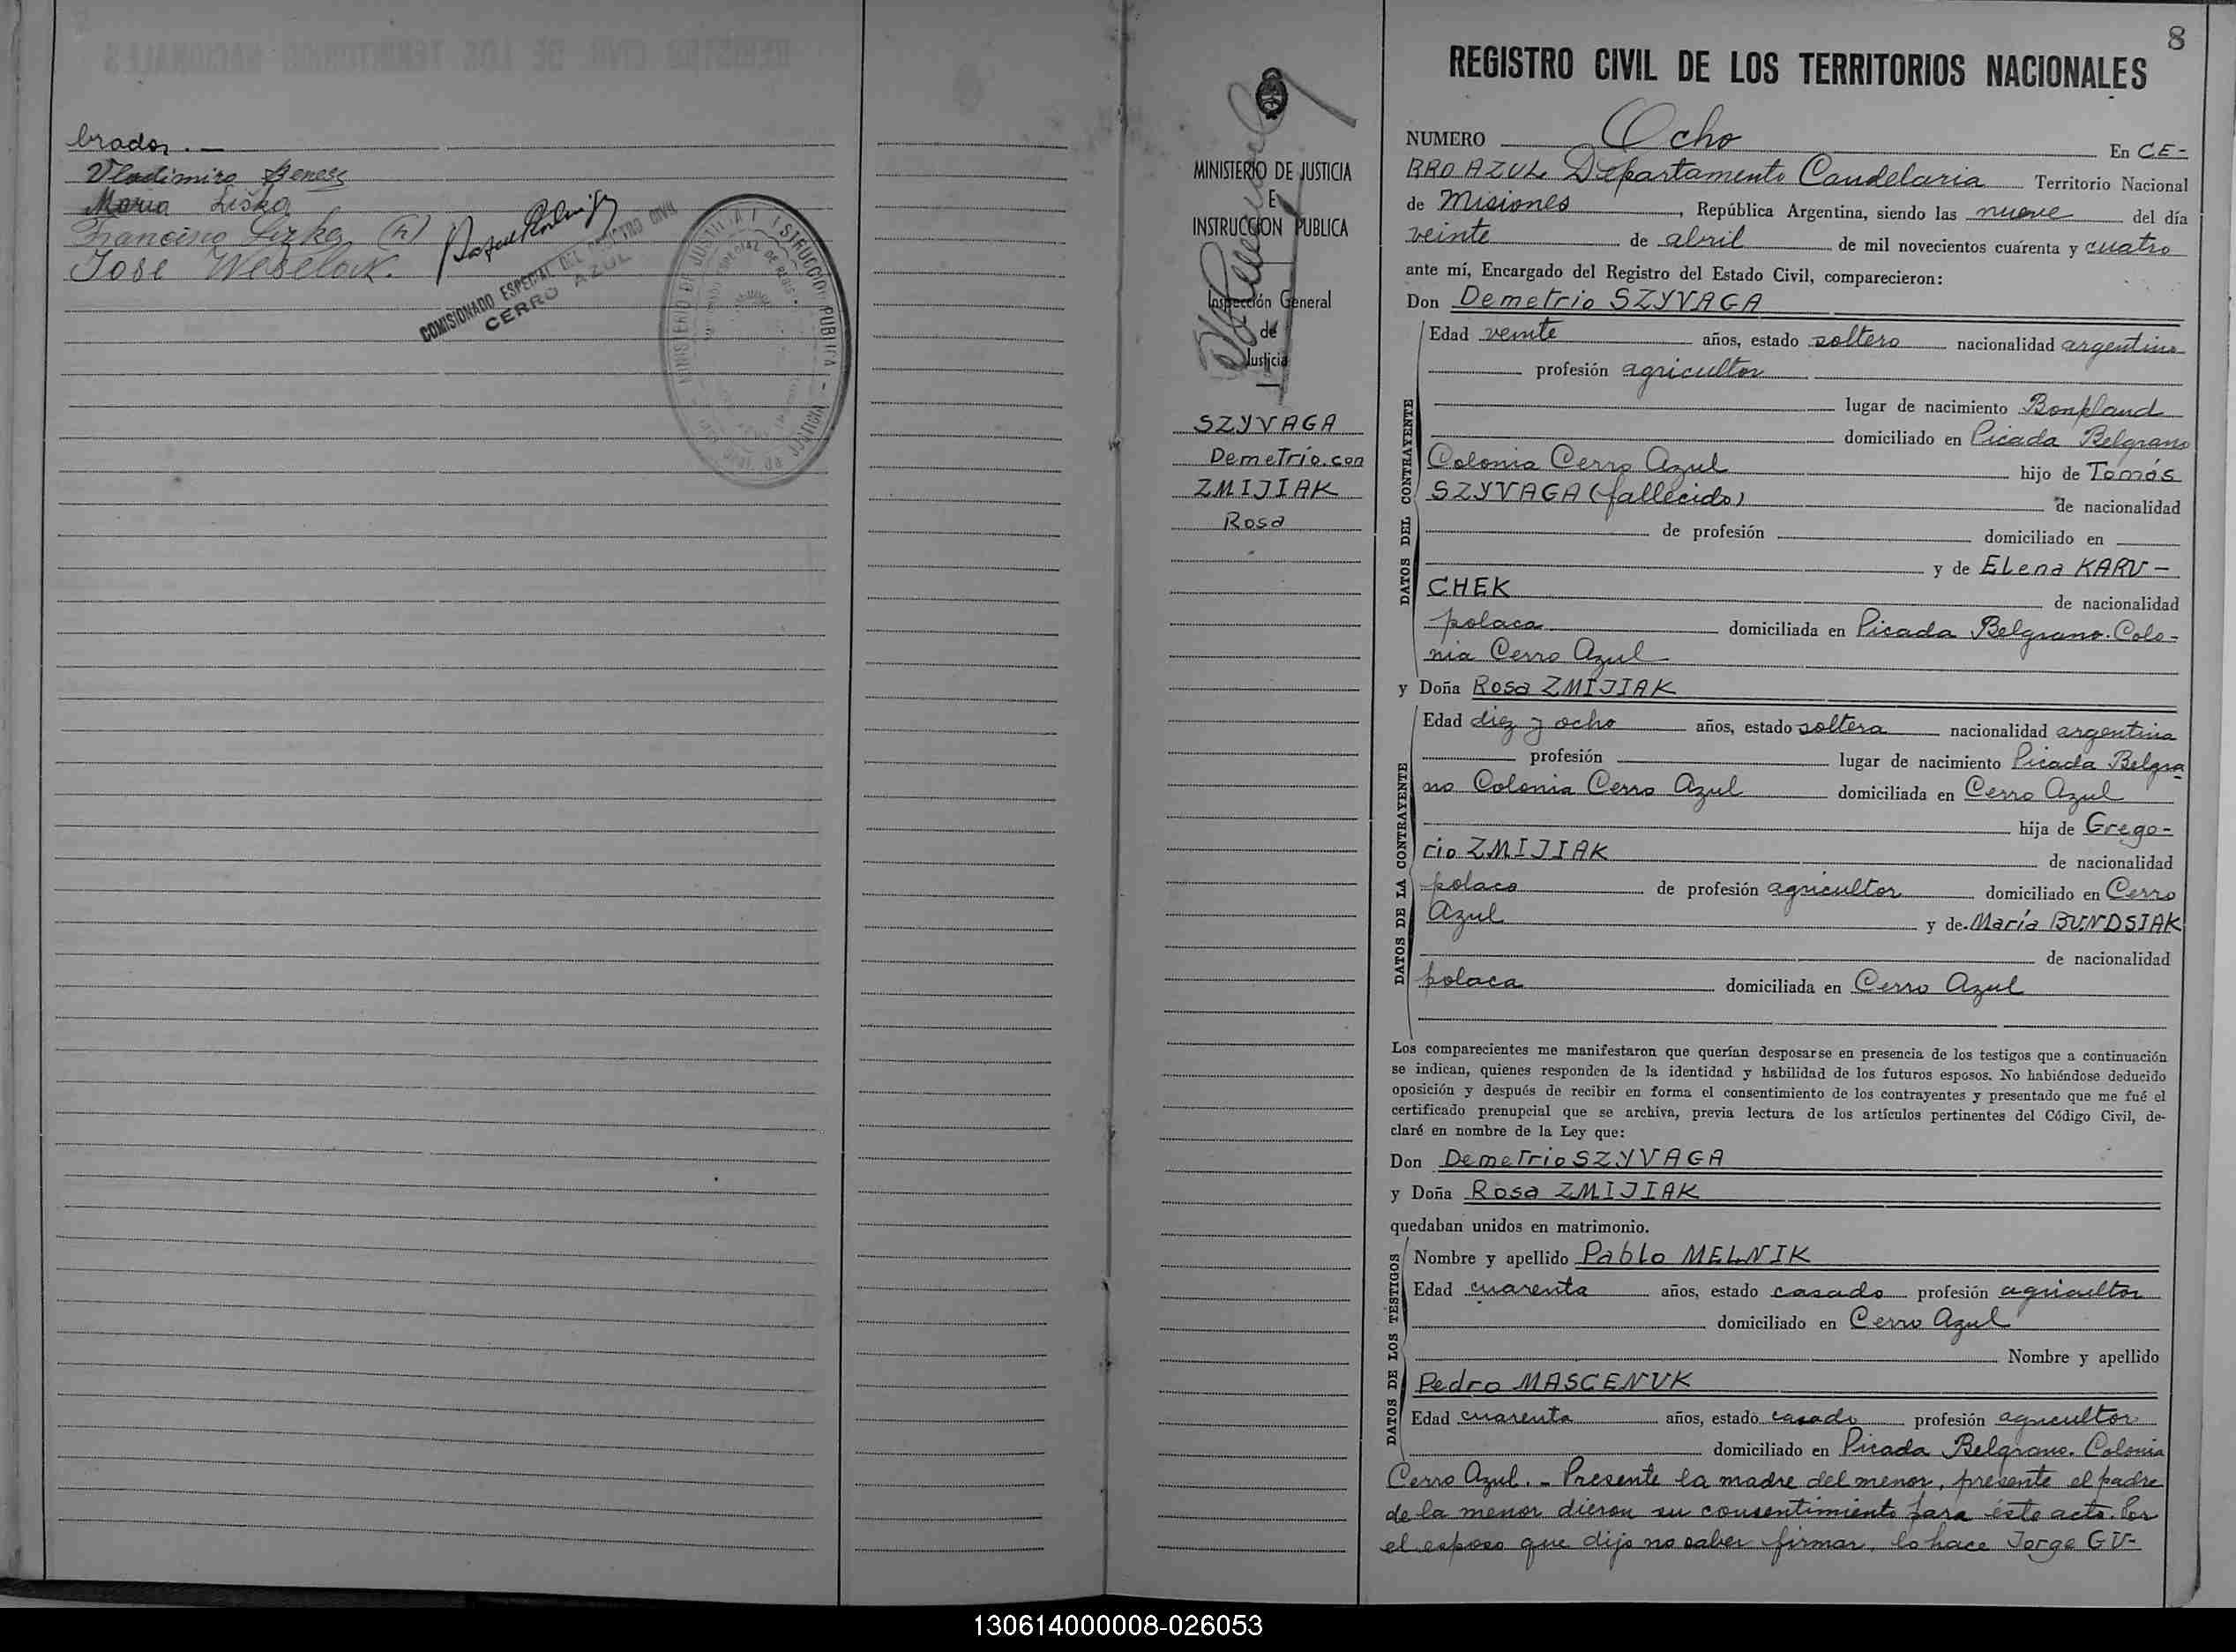 brados. —
Vladimiro Beness
Maria Liska
Francisco Lizka (h)
José Weselack.
COMISIONADO ESPECIAL DEL REGISTRO CIVIL
CERRO AZUL
MINISTERIO DE JUSTICIA E INSTRUCCION PUBLICA
MINISTERIO DE JUSTICIA
E
INSTRUCCION PUBLICA
Inspección General
de
Justicia
SZYVAGA
Demetrio con
ZMIJIAK
Rosa
8
REGISTRO CIVIL DE LOS TERRITORIOS NACIONALES
NUMERO Ocho En CE-
RRO AZUL Departamento Candelaria Territorio Nacional
de Misiones, República Argentina, siendo las nueve del día
veinte de abril de mil novecientos cuarenta y cuatro
ante mí, Encargado del Registro del Estado Civil, comparecieron:
Don Demetrio SZYVAGA
DATOS DEL CONTRAYENTE
Edad veinte años, estado soltero nacionalidad argentino
profesión agricultor
lugar de nacimiento Bonpland
domiciliado en Picada Belgrano
Colonia Cerro Azul hijo de Tomás
SZYVAGA (fallecido) de nacionalidad
de profesión domiciliado en
y de Elena KARU-
CHEK de nacionalidad
polaca domiciliada en Picada Belgrano. Colo-
nia Cerro Azul
y Doña Rosa ZMIJIAK
DATOS DE LA CONTRAYENTE
Edad diez y ocho años, estado soltera nacionalidad argentina
profesión lugar de nacimiento Picada Belgra
no Colonia Cerro Azul domiciliada en Cerro Azul
hija de Grego-
rio ZMIJIAK de nacionalidad
polaco de profesión agricultor domiciliado en Cerro
Azul y de María BUNDSIAK
de nacionalidad
polaca domiciliada en Cerro Azul
Los comparecientes me manifestaron que querían desposarse en presencia de los testigos que a continuación
se indican, quienes responden de la identidad y habilidad de los futuros esposos. No habiéndose deducido
oposición y después de recibir en forma el consentimiento de los contrayentes y presentado que me fué el
certificado prenupcial que se archiva, previa lectura de los artículos pertinentes del Código Civil, de-
claré en nombre de la Ley que:
Don Demetrio SZYVAGA
y Doña Rosa ZMIJIAK
quedaban unidos en matrimonio.
DATOS DE LOS TESTIGOS
Nombre y apellido Pablo MELNIK
Edad cuarenta años, estado casado profesión agricultor
domiciliado en Cerro Azul
Nombre y apellido
Pedro MASCENUK
Edad cuarenta años, estado casado profesión agricultor
domiciliado en Picada Belgrano. Colonia
Cerro Azul. - Presente la madre del menor, presente el padre
de la menor dieron su consentimiento para éste acto. Por
el esposo que dijo no saber firmar, lo hace Jorge GU-
130614000008-026053